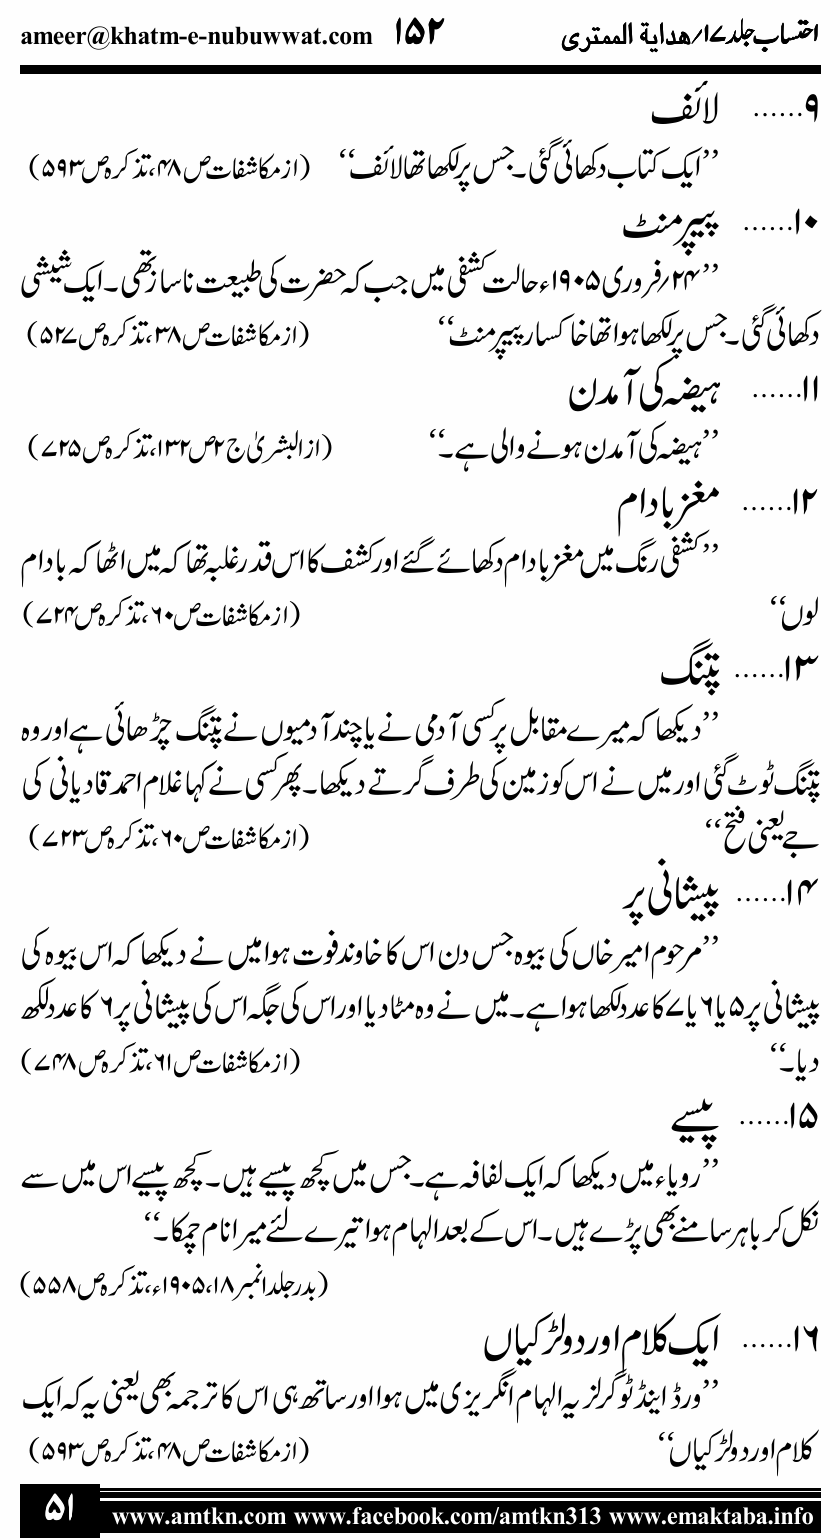 احتساب جلد ۱۷/هداية الممتری ۱۵۲ ameer@khatm-e-nubuwwat.com
۹...... لائف
’’ایک کتاب دکھائی گئی۔ جس پر لکھا تھا لائف‘‘ (از مکاشفات ص۴۸، تذکرہ ص۵۹۳)
۱۰...... پیپرمنٹ
’’۲۴؍فروری ۱۹۰۵ء حالت کشفی میں جب کہ حضرت کی طبیعت ناساز تھی۔ ایک شیشی
دکھائی گئی۔ جس پر لکھا ہوا تھا خاکسار پیپرمنٹ‘‘ (از مکاشفات ص۳۸، تذکرہ ص۵۲۷)
۱۱...... ہیضہ کی آمدن
’’ہیضہ کی آمدن ہونے والی ہے۔‘‘ (از البشریٰ ج۲ ص۱۳۲، تذکرہ ص۷۲۵)
۱۲...... مغز بادام
’’کشفی رنگ میں مغز بادام دکھائے گئے اور کشف کا اس قدر غلبہ تھا کہ میں اٹھا کہ بادام
لوں‘‘ (از مکاشفات ص۶۰، تذکرہ ص۷۲۴)
۱۳...... پتنگ
’’دیکھا کہ میرے مقابل پر کسی آدمی نے یا چند آدمیوں نے پتنگ چڑھائی ہے اور وہ
پتنگ ٹوٹ گئی اور میں نے اس کو زمین کی طرف گرتے دیکھا۔ پھر کسی نے کہا غلام احمد قادیانی کی
جے یعنی فتح‘‘ (از مکاشفات ص۶۰، تذکرہ ص۷۲۳)
۱۴...... پیشانی پر
’’مرحوم امیر خاں کی بیوہ جس دن اس کا خاوند فوت ہوا میں نے دیکھا کہ اس بیوہ کی
پیشانی پر ۵ یا ۶ یا ۷ کا عدد لکھا ہوا ہے۔ میں نے وہ مٹا دیا اور اس کی جگہ اس کی پیشانی پر ۶ کا عدد لکھ
دیا۔‘‘ (از مکاشفات ص۶۱، تذکرہ ص۷۴۸)
۱۵...... پیسے
’’رویاء میں دیکھا کہ ایک لفافہ ہے۔ جس میں کچھ پیسے ہیں۔ کچھ پیسے اس میں سے
نکل کر باہر سامنے بھی پڑے ہیں۔ اس کے بعد الہام ہوا تیرے لئے میرا نام چمکا۔‘‘
(بدر جلد۱ نمبر۱۸، ۱۹۰۵ء، تذکرہ ص۵۵۸)
۱۶...... ایک کلام اور دو لڑکیاں
’’ورڈ اینڈ ٹو گرلز یہ الہام انگریزی میں ہوا اور ساتھ ہی اس کا ترجمہ بھی یعنی یہ کہ ایک
کلام اور دو لڑکیاں‘‘ (از مکاشفات ص۴۸، تذکرہ ص۵۹۳)
۵۱ www.amtkn.com www.facebook.com/amtkn313 www.emaktaba.info